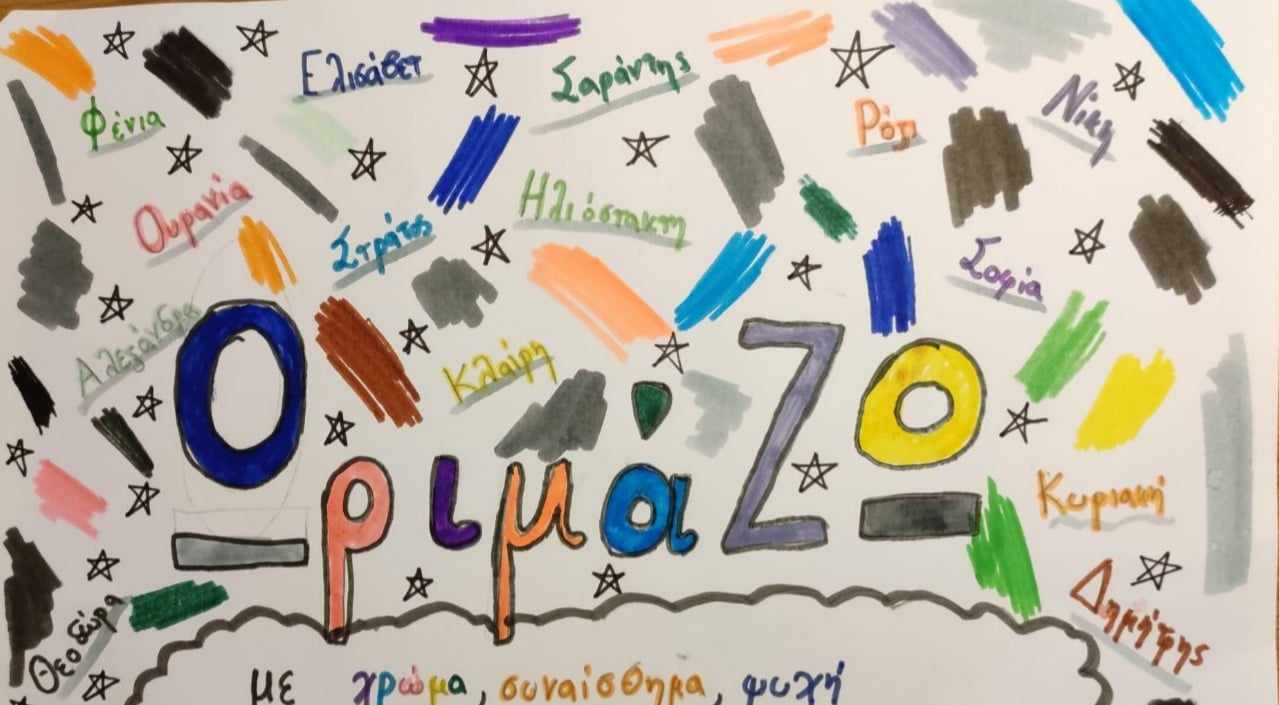 Φένια
Ελισάβετ
Σαράντης
Ρόη
Νίκη
Ουρανία
Στράτος
Ηλιόστακτη
Σοφία
Αλεξάνδρα
Κλαίρη
Οριμάζο
Κυριακή
Δημήτρης
Θεοδώρα
με χρώμα, συναίσθημα, ψυχή